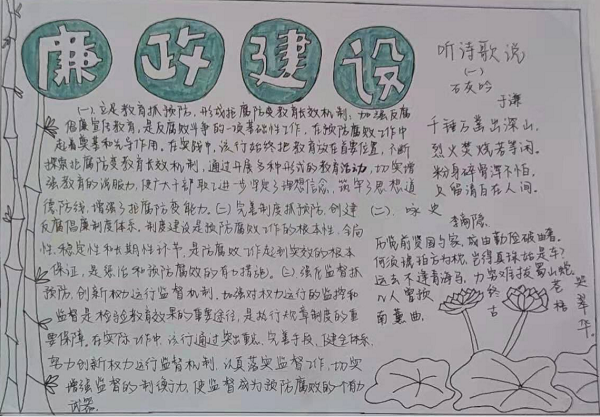 廉政建设
(一)完善教育抓预防,形成拒腐防变教育长效机制,加强反腐
倡廉宣传教育,是反腐斗争的一项基础性工作,在预防腐败工作中
起着重要和先导作用。在实践中,该行始终把教育放在首要位置,不断
探索拒腐防变教育长效机制,通过开展多种形式的教育活动,切实增
强教育的说服力,使广大干部职工进一步坚定了理想信念,筑牢了思想道
德防线,增强了拒腐防变能力。(二)完善制度抓预防,创建
反腐倡廉制度体系。制度建设是预防腐败工作的根本性、全局
性、稳定性和长期性环节,是防腐败工作起到实效的根本
保证,是惩治和预防腐败的有力措施。(三)强化监督抓
预防,创新权力运行监督机制。加强对权力运行的监控和
监督是检验教育效果的重要途径,是执行规章制度的重
要保障。在实际工作中,该行通过突出重点、完善手段、健全体系、
努力创新权力运行监督机制,认真落实监督工作,切实
增强监督的制衡力,使监督成为预防腐败的有力
武器。
听诗歌说
(一)
石灰吟
于谦
千锤万凿出深山,
烈火焚烧若等闲。
粉身碎骨浑不怕,
要留清白在人间。
(二) 咏史
李商隐
历览前贤国与家,成由勤俭破由奢。
何须琥珀方为枕,岂得真珠始是车?
远去不逢青海马,力穷难拔蜀山蛇。
几人曾预
南薰曲,
终古
苍梧
哭翠华。